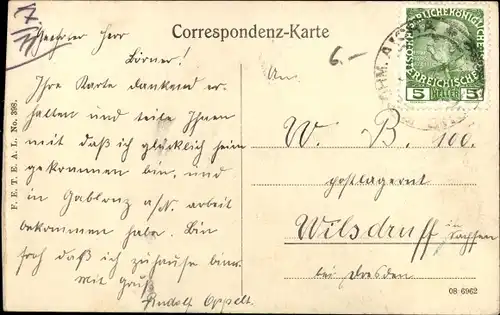 Correspondenz-Karte
Geehrter Herr
Lörner!
Ihre Karte dankend er-
halten und teile Ihnen
mit daß ich glücklich heim
gekommen bin, und
in Gablonz a/N. arbeit
bekommen habe. Bin
froh daß ich zuhause bin.
Mit Gruß
Rudolf Oppelt.
6.-
An
W. B. 100.
postlagernd
Wilsdruff in
Sachsen
bei Dresden
5 HELLER 5
F. E. T. E. A. L. No. 398.
08 6962